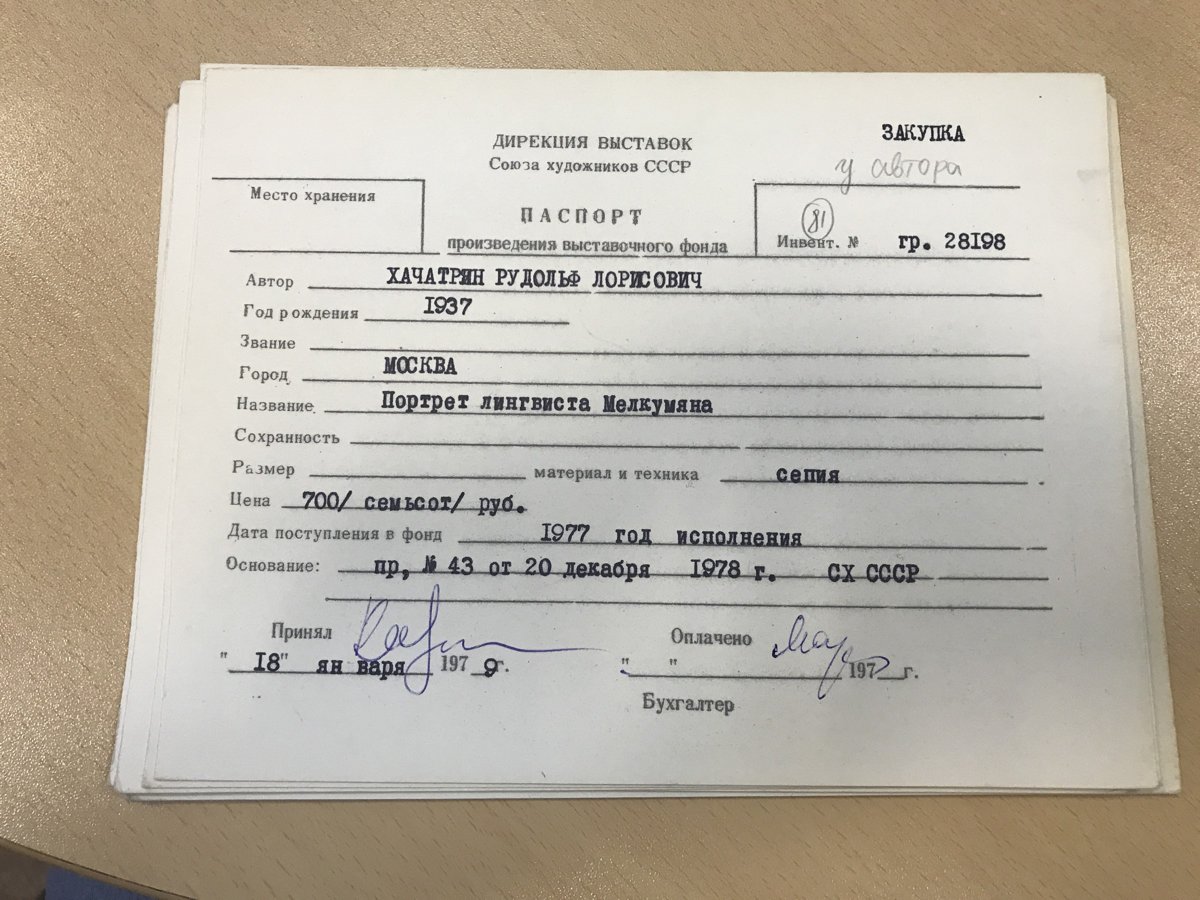 ЗАКУПКА
у автора
ДИРЕКЦИЯ ВЫСТАВОК
Союза художников СССР
Место хранения
ПАСПОРТ
произведения выставочного фонда
81
Инвент. № гр. 28I98
Автор ХАЧАТРЯН РУДОЛЬФ ЛОРИСОВИЧ
Год рождения I937
Звание
Город МОСКВА
Название Портрет лингвиста Мелкумяна
Сохранность
Размер материал и техника сепия
Цена 700/ семьсот/ руб.
Дата поступления в фонд I977 год исполнения
Основание: пр, № 43 от 20 декабря I978 г. СХ СССР
Принял Оплачено
" I8" ян варя 197 9г. " " 197 г.
Бухгалтер